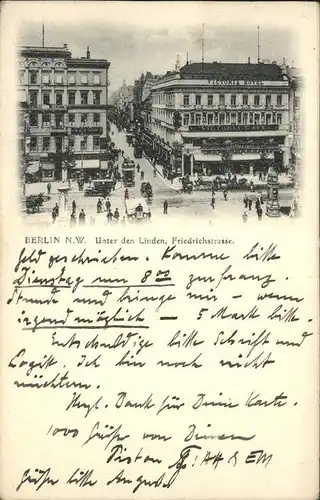 VICTORIA HOTEL
BERLIN N.W. Unter den Linden, Friedrichstrasse.
Geld geschrieben. Komme bitte
Dienstag um 8 00 zur franz.
Stunde und bringe mir – wenn
irgend möglich – 5 Mark bitte.
Entschuldige bitte Schrift und
Logik. Ich bin noch nicht
nüchtern.
Herzl. Dank für Deine Karte.
1000 Grüße von Deinem
Grüße bitte